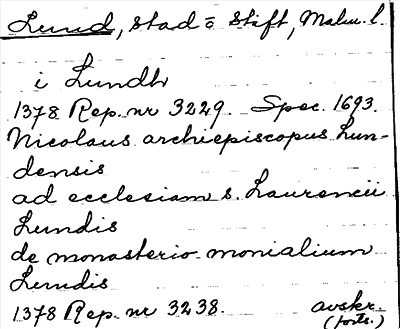 Lund, stad o stift, Malm. l.
i Lundh
1378 Rep. nr 3229. Spec. 1693.
Nicolaus archiepiscopus Lun-
densis
ad ecclesiam s. Laurencii
Lundis
de monasterio monialium
Lundis
1378 Rep. nr 3238. avskr.
(forts.)